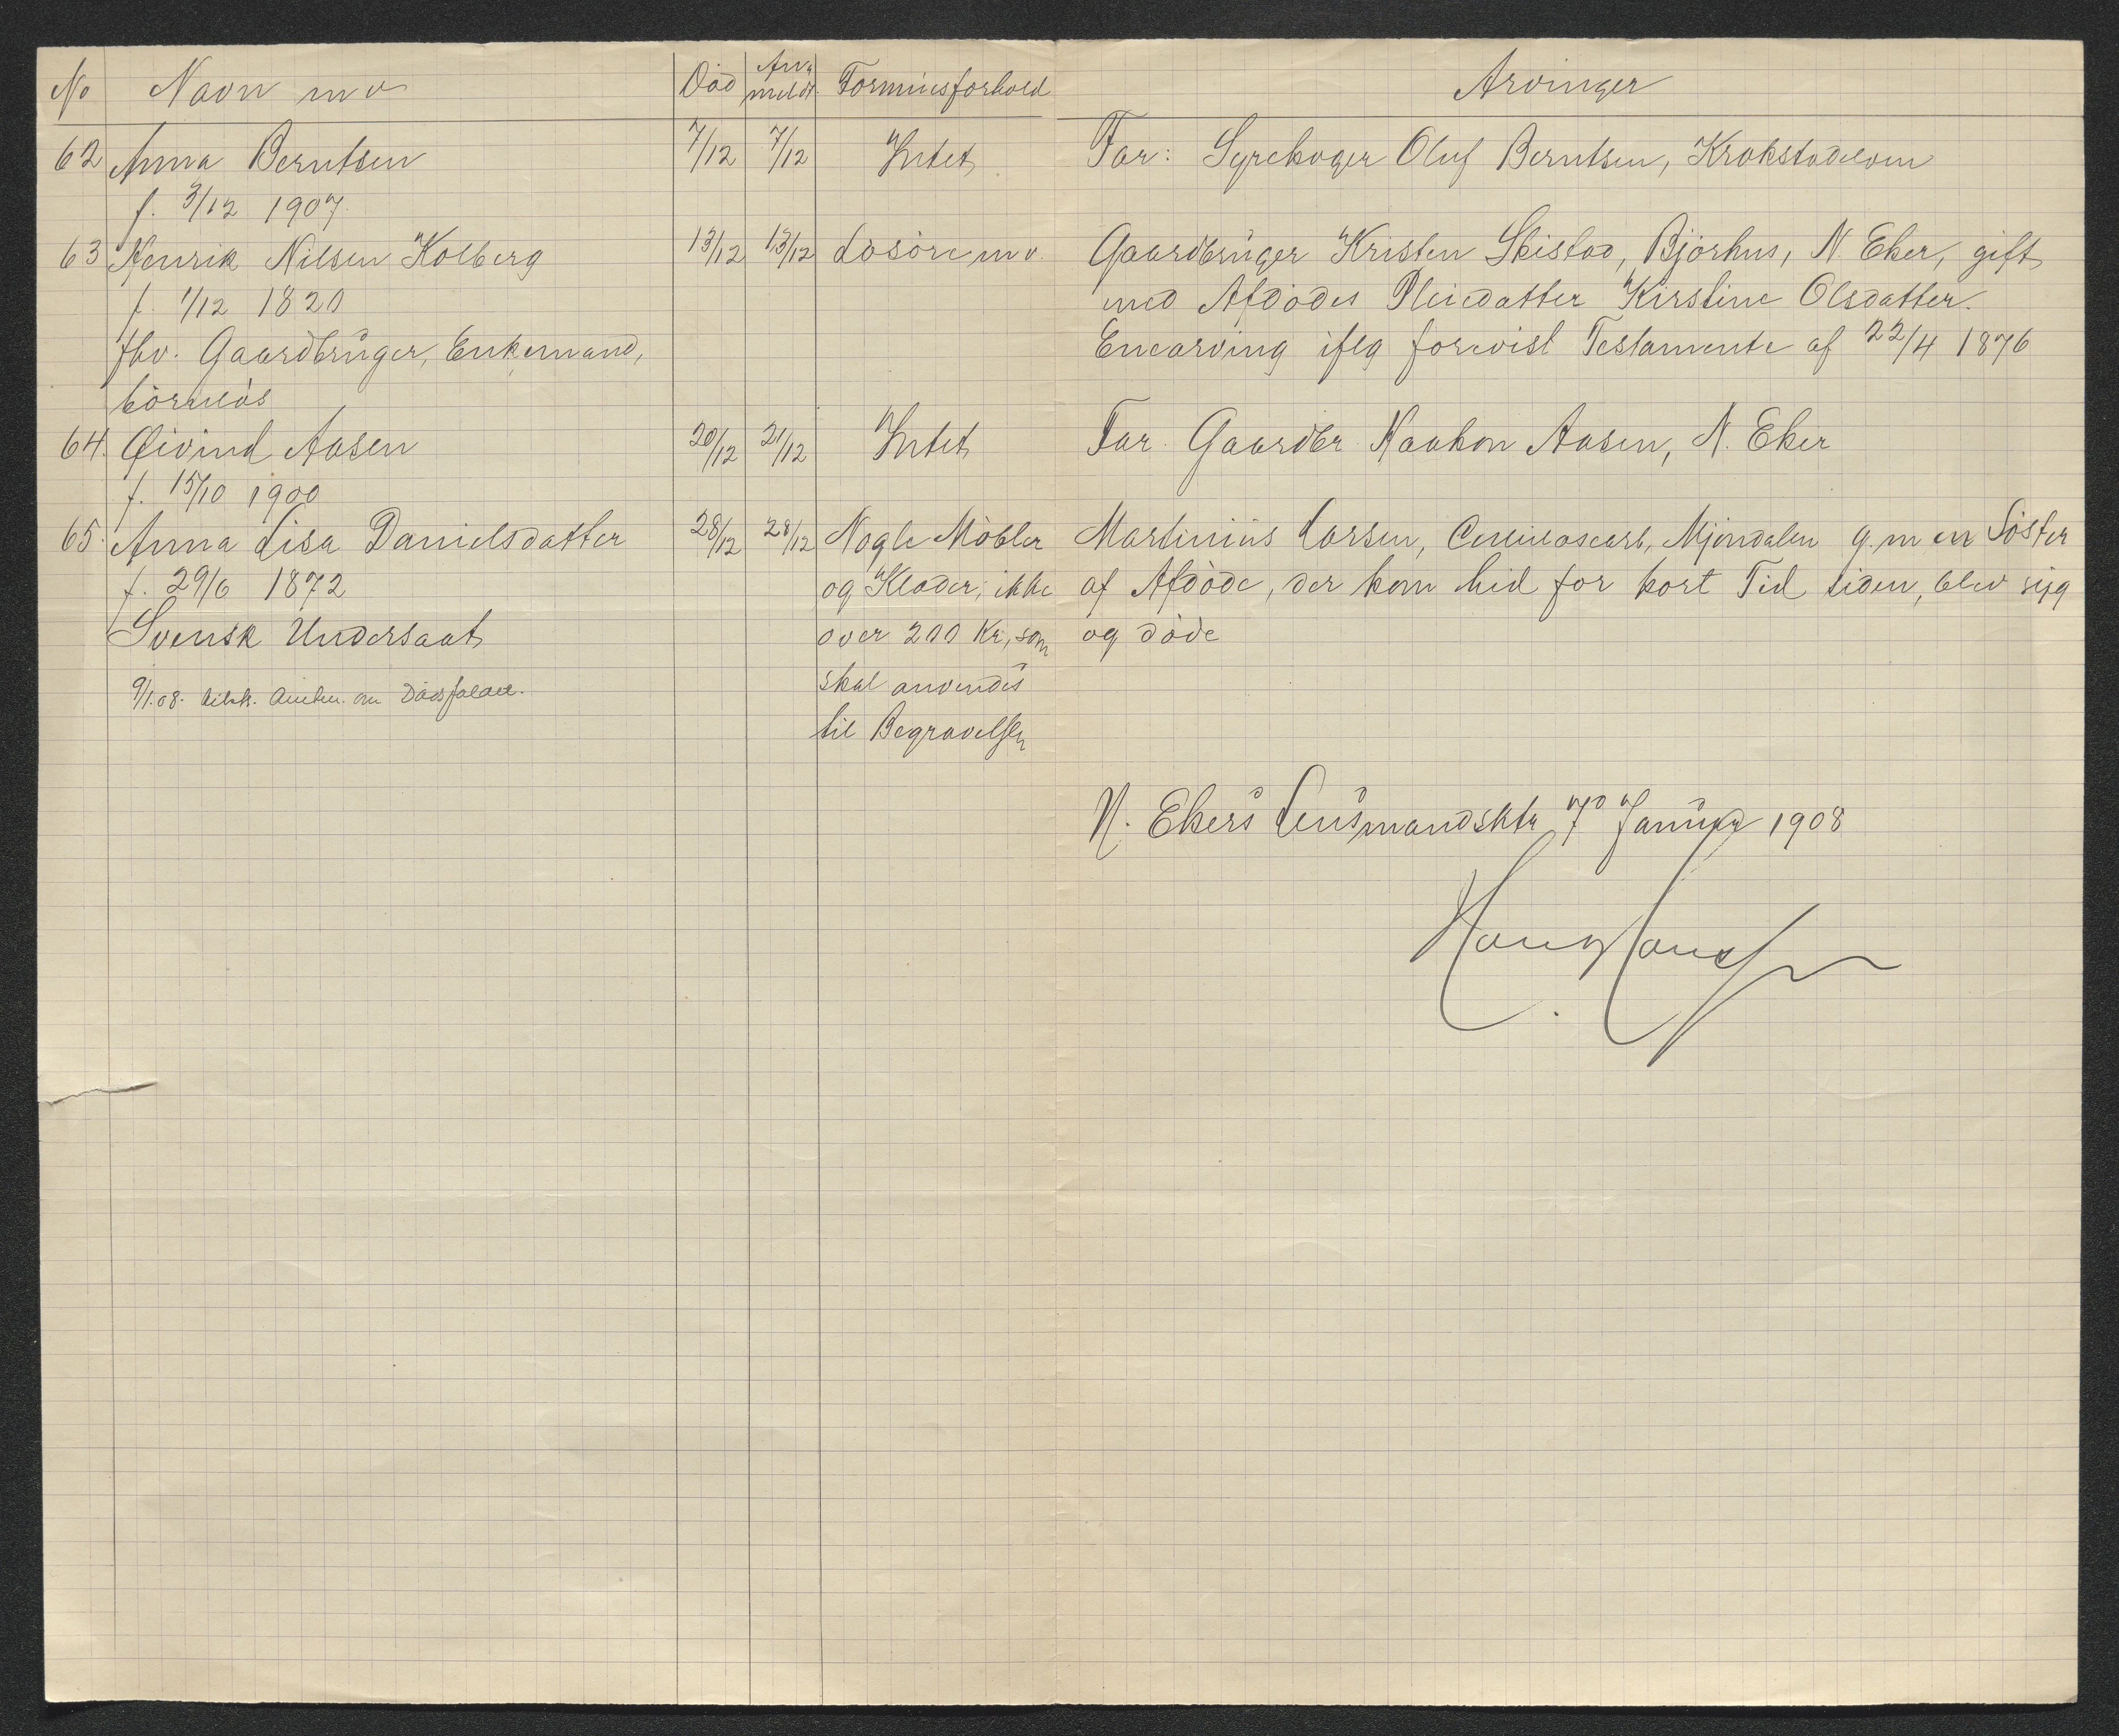 No Navn m v Död An-meldt Formuesforhold Arvinger
62 Anna Berntsen 7/12 7/12 Intet Far: Syrekoger Oluf Berntsen, Krokstadelven
f. 3/12 1907.
63 Henrik Nilsen Kolberg 13/12 13/12 Lösöre m v. Gaardbruger Kristen Skistad, Björhus, N. Eker, gift
f. 1/12 1820 med Afdödes Pleiedatter Kirstine Olsdatter.
fhv. Gaardbruger, Enkemand, Enearving iflg forevist Testamente af 22/4 1876
börnelös
64. Øivind Aasen 20/12 21/12 Intet Far. Gaardbr Haakon Aasen, N. Eker
f. 15/10 1900
65. Anna Lisa Danielsdatter 28/12 28/12 Nogle Möbler Martinius Larsen, Mjöndalen g. m en Söster
f. 29/6 1872 og Klæder, ikke af Afdöde, der kom hid for kort Tid siden, blev syg
Svensk Undersaat over 200 Kr, som og döde
9/1.08. om Dödsfaldet. skal anvendes
til Begravelsen
N. Ekers Lensmandsktr 7 Januar 1908